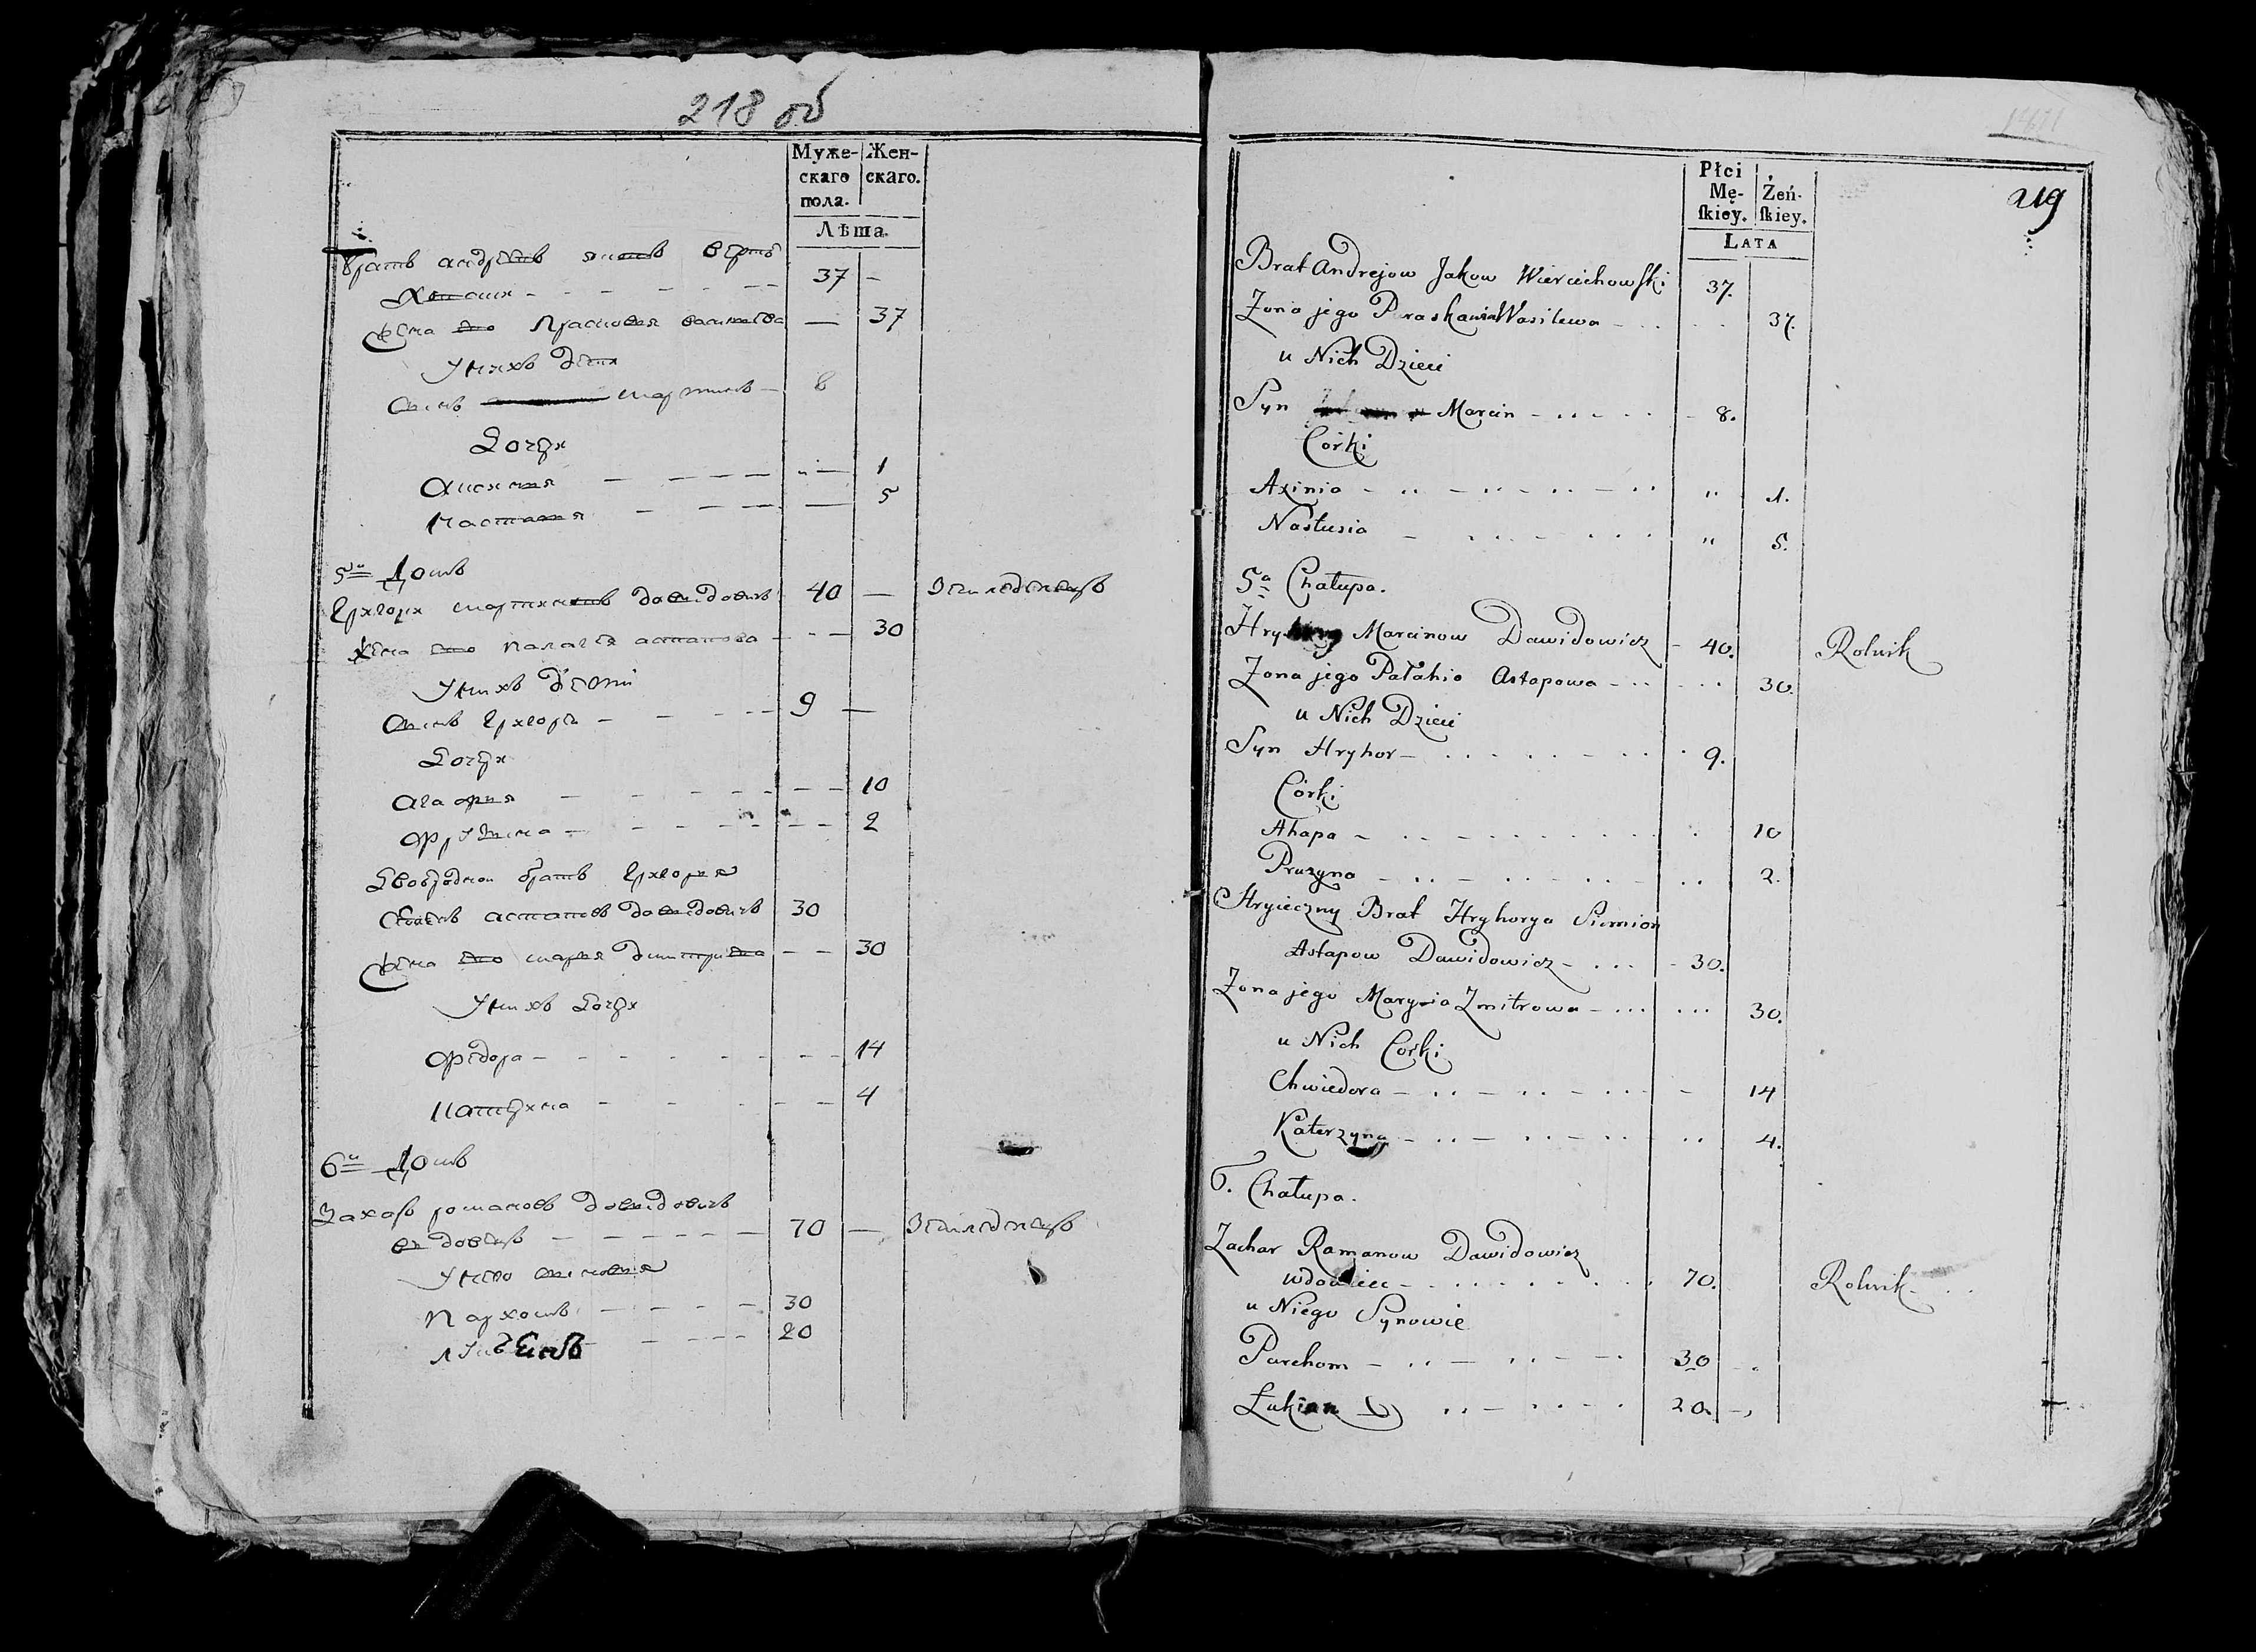 218 об
Муже-
скаго
пола.
Жен-
скаго.
Лѣта.
братъ андреевъ яковъ верте
хвския 37 —
жена его Прасковея василиева — 37
У них дети
Сынъ мартинъ — 8
Дочери
Аксения — 1
Настасия — 5
5й Домъ
Григори мартиновъ давидовичъ 40 — Земледелецъ
жена его палагея астапова — 30
У нихъ дети
Сынъ Григори 9 —
Дочери
Агафия — 10
Фрузына — 2
Двоюродной братъ Григория
Семенъ астаповъ давидовичъ 30
жена его маря дмитриева — 30
У нихъ Дочери
Федора — 14
Катерина — 4
6й Домъ
Захаръ романовъ давидовичъ
вдовецъ 70 — Земледелецъ
У него сыновя
Пархомъ 30
20
219
Płci
Mę-
skiey.
Żeń-
skiey.
LATA
Brat Andrejow Jakow Wierciechowski 37.
Żona jego Paraskawia Wasilewa 37.
u Nich Dzieci
Syn Marcin 8.
Corki
Axinia " 1.
Nastusia " 5.
5a Chałupa.
Marcinow Dawidowicz 40. Rolnik
Żona jego Pałahia Astapowa 30.
u Nich Dzieci
Syn Hryhor 9.
Córki
Ahapa 10
Pruzyna 2.
Stryieczny Brat Hryhorya Siemion
Astapow Dawidowicz 30.
Żona jego Marysia Zmitrowa 30.
u Nich Corki
Chwiedora 14
Katerzyna 4.
6. Chałupa.
Zachar Ramanow Dawidowicz
wdowiec 70. Rolnik
u Niego Synowie
Parchom 30
Łukian 20.